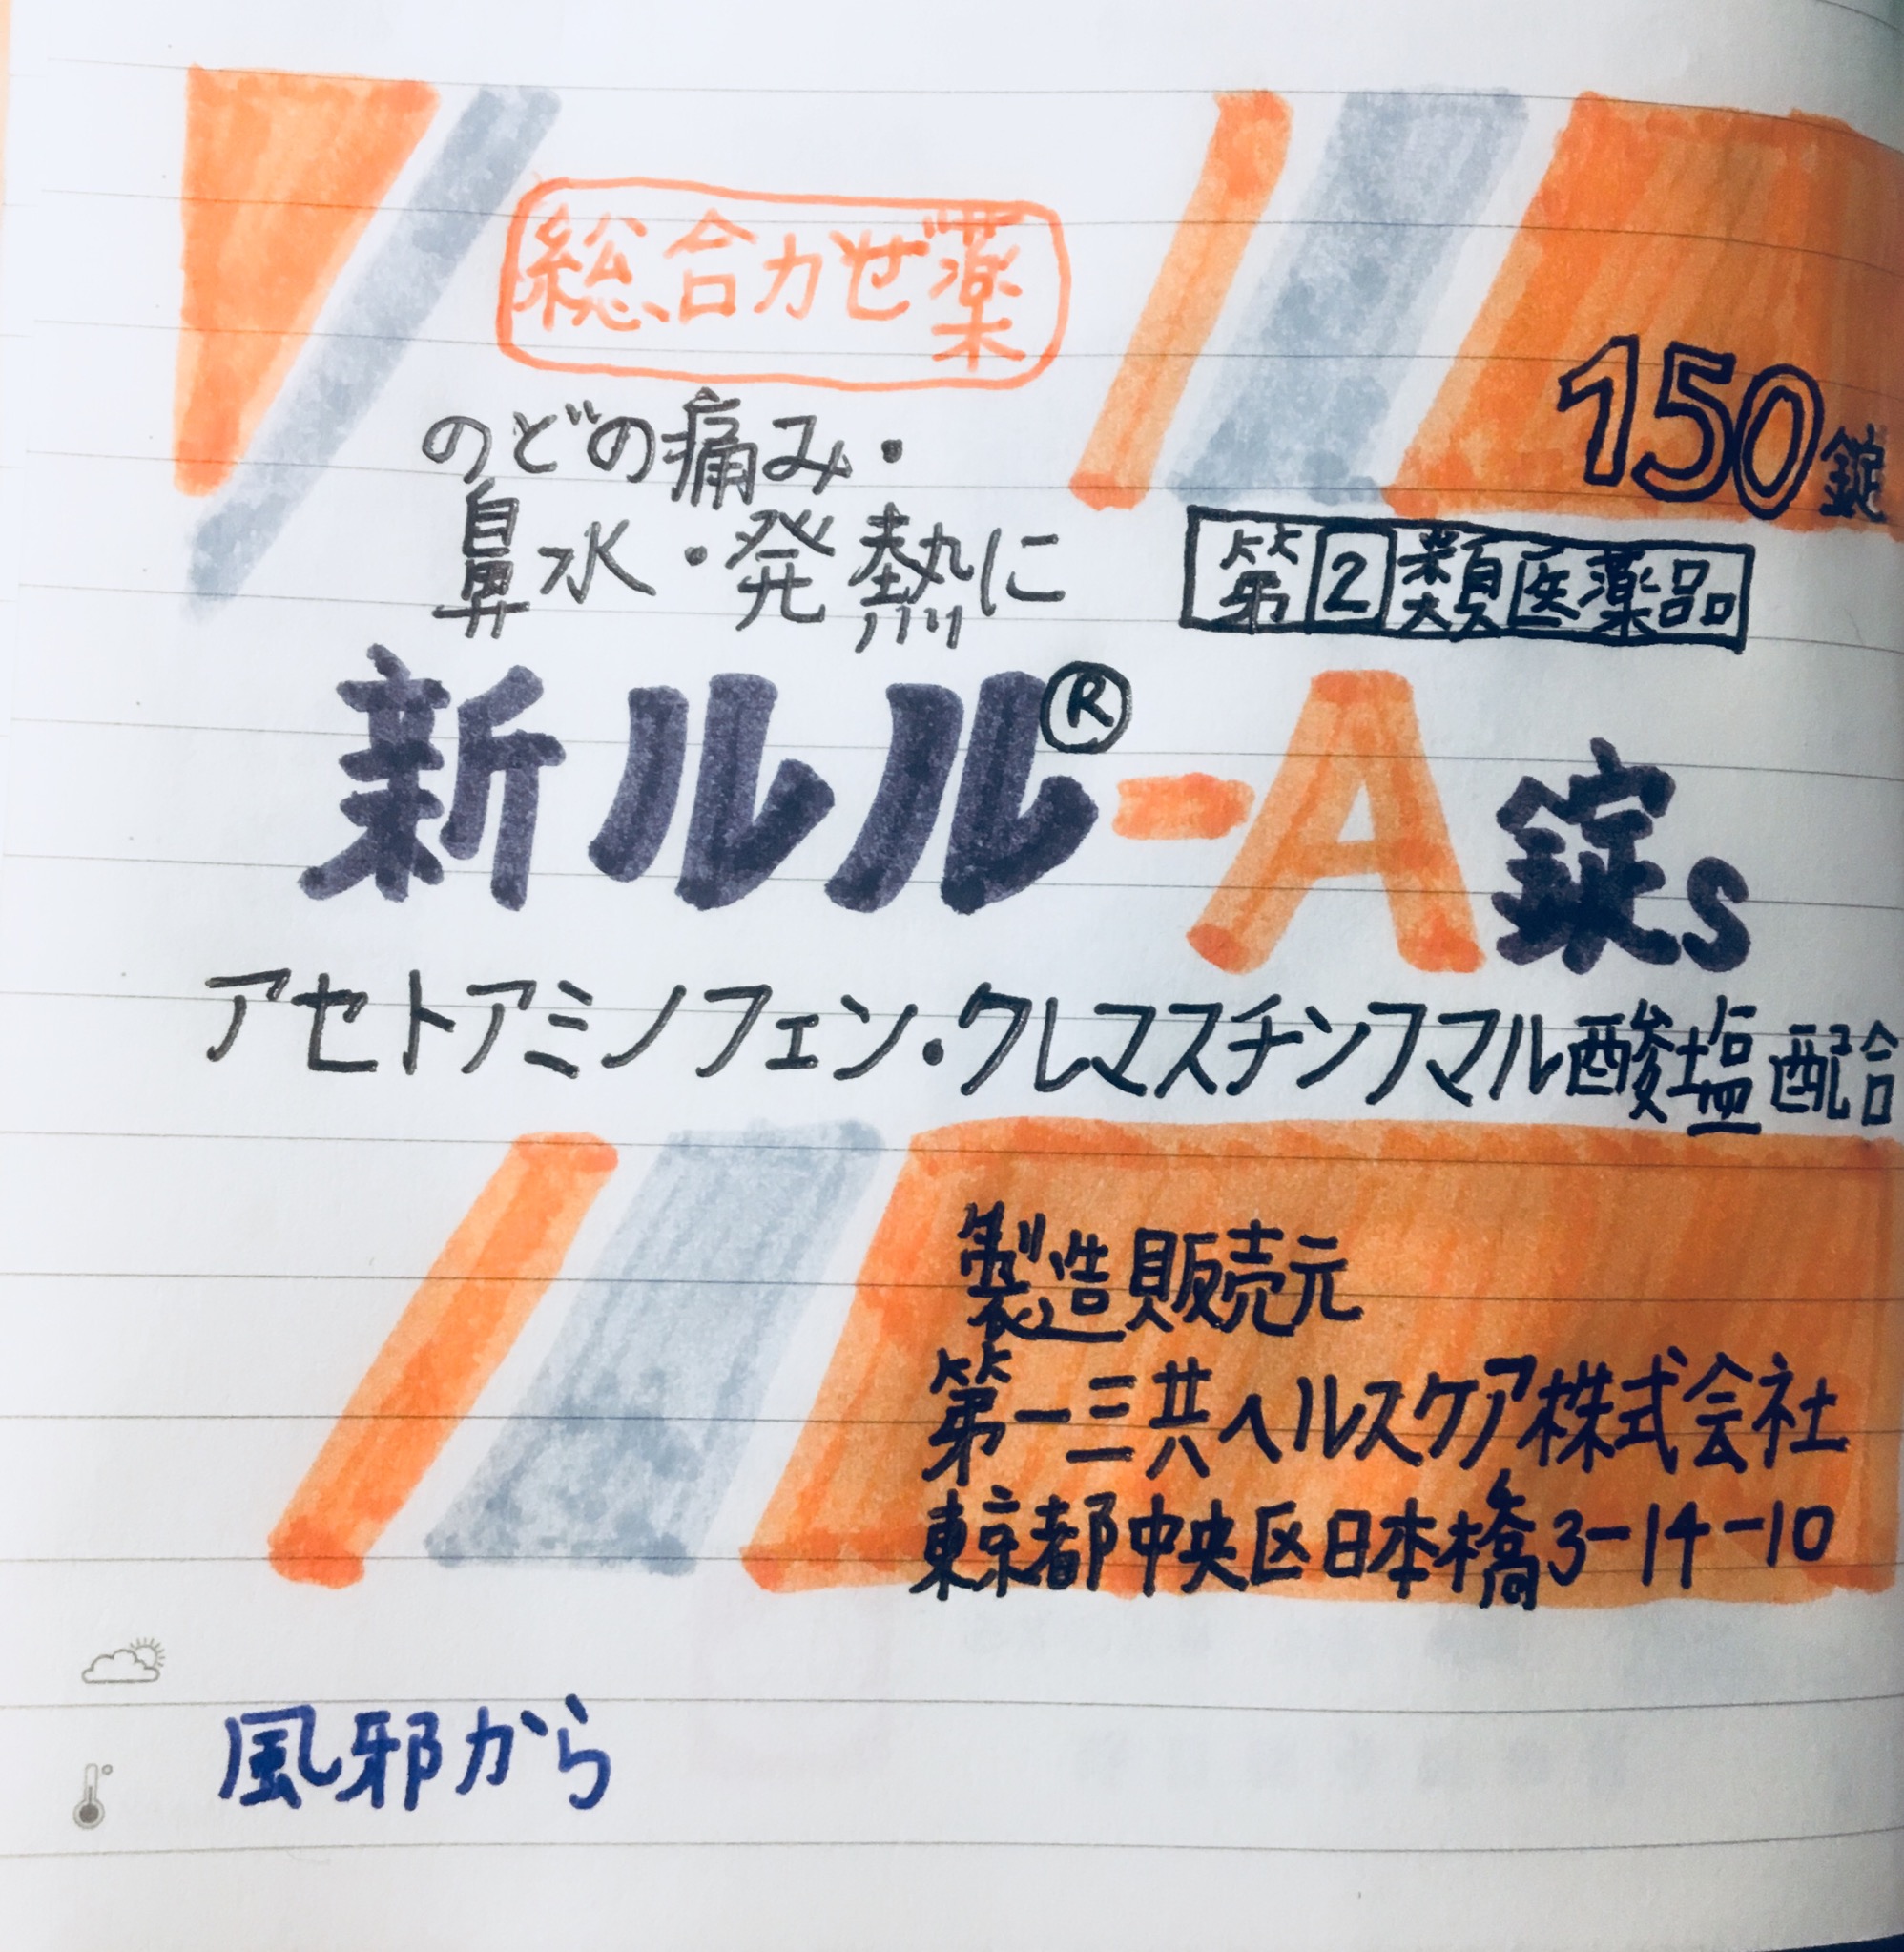 総合かぜ薬
150錠
のどの痛み・
鼻水・発熱に
第2類医薬品
新ルル®-A錠s
アセトアミノフェン・クレマスチンフマル酸塩配合
製造販売元
第一三共ヘルスケア株式会社
東京都中央区日本橋3-14-10
風邪から